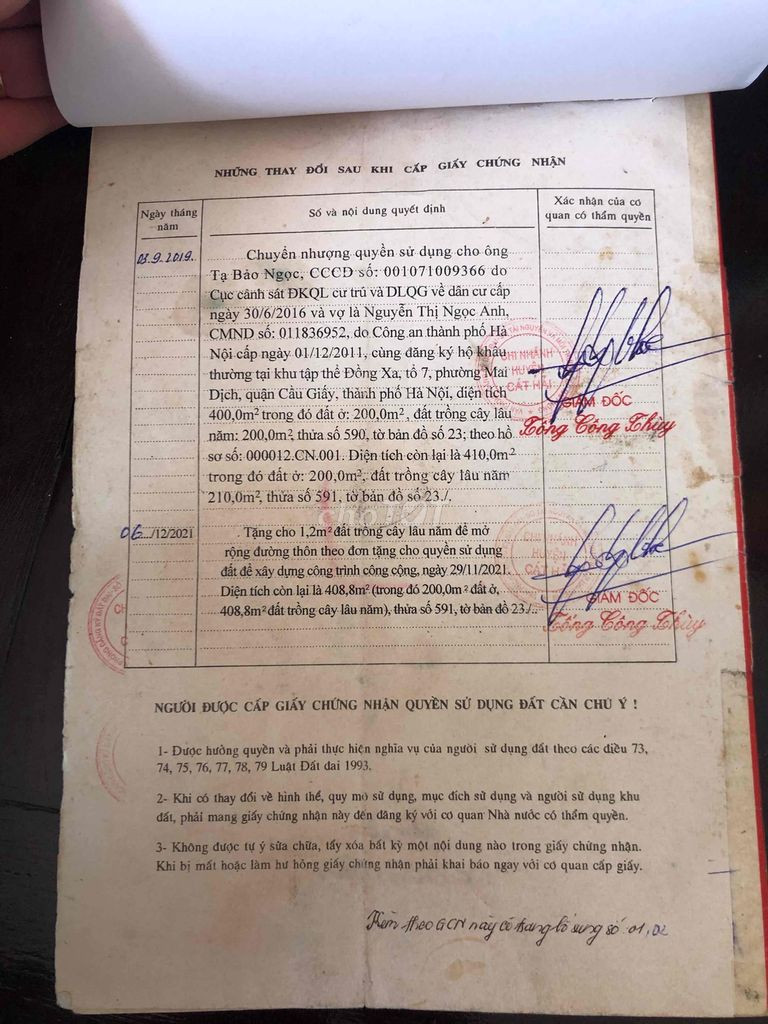 NHỮNG THAY ĐỔI SAU KHI CẤP GIẤY CHỨNG NHẬN
Ngày tháng năm
Số và nội dung quyết định
Xác nhận của cơ quan có thẩm quyền
03.9.2019.
Chuyển nhượng quyền sử dụng cho ông
Tạ Bảo Ngọc, CCCD số: 001071009366 do
Cục cảnh sát ĐKQL cư trú và DLQG về dân cư cấp
ngày 30/6/2016 và vợ là Nguyễn Thị Ngọc Anh,
CMND số: 011836952, do Công an thành phố Hà
Nội cấp ngày 01/12/2011, cùng đăng ký hộ khẩu
thường tại khu tập thể Đồng Xa, tổ 7, phường Mai
Dịch, quận Cầu Giấy, thành phố Hà Nội, diện tích
400,0m² trong đó đất ở: 200,0m², đất trồng cây lâu
năm: 200,0m², thửa số 590, tờ bản đồ số 23; theo hồ
sơ số: 000012.CN.001. Diện tích còn lại là 410,0m²
trong đó đất ở: 200,0m², đất trồng cây lâu năm
210,0m², thửa số 591, tờ bản đồ số 23./.
CHI NHÁNH
HUYỆN
CÁT HẢI
GIÁM ĐỐC
Tống Công Thùy
06.../12/2021
Tặng cho 1,2m² đất trồng cây lâu năm để mở
rộng đường thôn theo đơn tặng cho quyền sử dụng
đất để xây dựng công trình công cộng, ngày 29/11/2021.
Diện tích còn lại là 408,8m² (trong đó 200,0m² đất ở,
408,8m² đất trồng cây lâu năm), thửa số 591, tờ bản đồ 23./.
CHI NHÁNH
HUYỆN
CÁT HẢI
GIÁM ĐỐC
Tống Công Thùy
NGƯỜI ĐƯỢC CẤP GIẤY CHỨNG NHẬN QUYỀN SỬ DỤNG ĐẤT CẦN CHÚ Ý !
1- Được hưởng quyền và phải thực hiện nghĩa vụ của người sử dụng đất theo các điều 73,
74, 75, 76, 77, 78, 79 Luật Đất đai 1993.
2- Khi có thay đổi về hình thể, quy mô sử dụng, mục đích sử dụng và người sử dụng khu
đất, phải mang giấy chứng nhận này đến đăng ký với cơ quan Nhà nước có thẩm quyền.
3- Không được tự ý sửa chữa, tẩy xóa bất kỳ một nội dung nào trong giấy chứng nhận.
Khi bị mất hoặc làm hư hỏng giấy chứng nhận phải khai báo ngay với cơ quan cấp giấy.
Kèm theo GCN này có trang bổ sung số: 01, 02